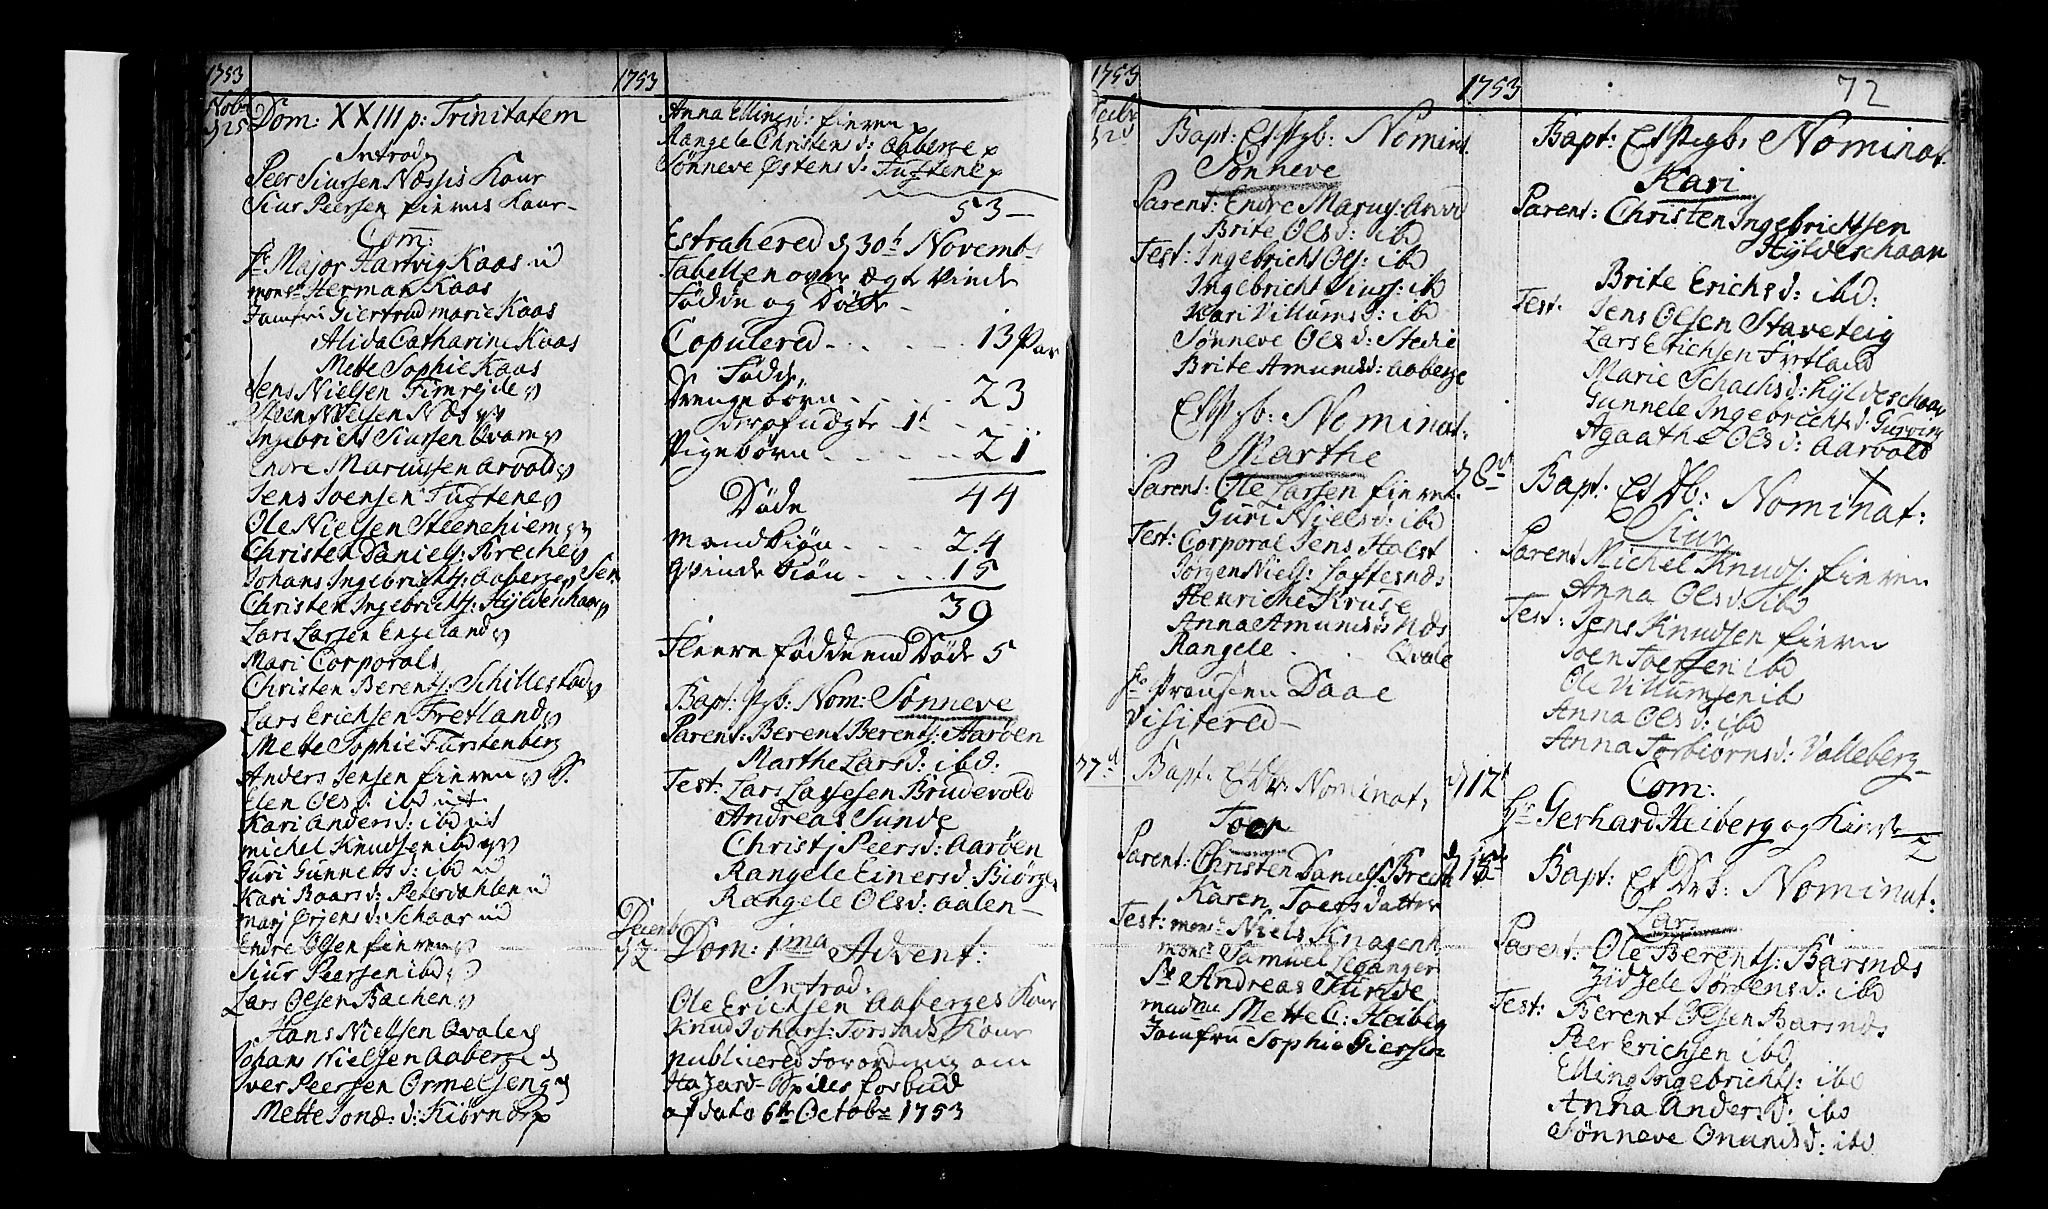 1753
Nobr
d 25
Dom: XXIII p: Trinitatem
Introd:
Peer Siursen Næssis Konr
Siur Peersen fierens Konr
Com:
Hr Major Hartvig Kaas
monsr Herman Kaas
Jomfru Giertrud marie Kaas
Alida Catharine Kaas
Mette Sophie Kaas
Jens Nielsen Fimrejde
Steen Nielsen Næs
Ingebricht Siursen Qvam
Endre Marcussen Arvold
Jens Joensen Tuftene
Ole Nielsen Steenehiem
Christen Daniels: Breche
Johans Ingebrichts: Aaberge Sen
Christen Ingebrichts: Hyldeshaar
Lars Larsen Engeland
Mari Corporals
Christen Berents: Schillestad
Lars Erichsen Fretland
Mette Sophie Fürstenberg
Anders Jensen fieren
Elen Olsd: ibd
Kari Andersd: ibd
michel Knudsen ibd
Guri Gunnersd: ibd
Kari Baarsd: Petersdahlen
mari Ørjensd: Schaar
Endre Olsen fieren
Siur Peersen ibd
Lars Olsen Bachen
Hans Nielsen Qvale
Johans Nielsen Aaberge
Iver Peersen Ormelseng
Mette Jonæd: Kiørnes
1753
Anna Ellingsd: fieren
Rangele Christensd: Aaberge
Sønneve Østensd: Tuftene
53
Extrahered d 30te Novembr
Tabellen over Ægte Viede
Fødde og Døde
Copulered 13 Par
Fødde,
Drengebørn 23
deraf uægte 1
Pigebørn 21
44
Døde
Mandkiøn 24
Qvindekiøn 15
39
Fleere fødde end Døde 5
Bapt: Pgb: Nom: Sønneve
Parent: Berent Berents: Aarøen
Marthe Larsd: ibd.
Test: Lars Lassesen Brudevold
Andreas Sunde
Christj Peersd: Aarøen
Rangele Einersd: Biørge
Rangele Olsd: Aalen
Decemb
d 2
Dom: 1ma Advent:
Introd:
Ole Erichsen Aaberges Konr
Knud Johans: Torstads Konr
publicered Forordning om
Hazard-Spilles forbud
af dato 6te Octobr 1753
1753
d 2
Bapt: Et Pgb: Nominat.
Sønneve
Parent: Endre Marcus: Arvold
Brite Olsd: ibd
Test: Ingebricht Ols: ibd
Ingebricht Siurs: ib
Kari Villumsd: ibd
Sønneve Olsd: Stedie
Brite Amundsd: Aaberge
Et Pgb: Nominat:
Marthe
Parent: Ole Larsen fieren
Guri Nielsd: ibd
Test: Corporal Jens Holst
Jørgen Niels: Loftesnæs
Henriche Kruse
Anna Amundsd: Næs
Rangele Qvale
Hr Provsten Daae
Visitered
d 7d
Bapt: Et Db: Nominat:
Toer
Parent: Christen Daniels: Breche
Karen Toersdatter
Test: monsr Niels Knagenh
monsr Samuel Leganger
Sr Andreas Sunde
madme Mette C: Heiberg
Jomfru Sophie Giersen
1753
72
Bapt: Et Pigb: Nominat.
Kari
Parent: Christen Ingebrichtsen
Hyldeschaar
Brite Erichsd: ibd:
Test. Jens Olsen Staveteig
Lars Erichsen Fretland
Marie Schachsd: Hyldeschaar
Gunnele Ingebrechtsd: Gurvin
Agaathe Olsd: Aarvold
d 8d
Bapt: Et Db: Nominat:
Siur
Parent Michel Knuds: fieren
Anna Olsd: ibd
Test: Jens Knudsen fieren
Joen Joersen ibd
Ole Villumsen ib
Anna Olsd: ibd
Anna Torbiørnsd: Valleberg
d 12t
Com:
Hr Gerhard Heiberg og Kierste
2
Bapt: Et Drb: Nominat:
Lars
Parent: Ole Berents: Barsnæs
Zidzele Jørensd: ibd
Test: Berent Olsen Barsnæs
Peer Erichsen ibd
Elling Ingebrichts: ibd
Anna Andersd: ibd
Sønneve Omundsd: ibd